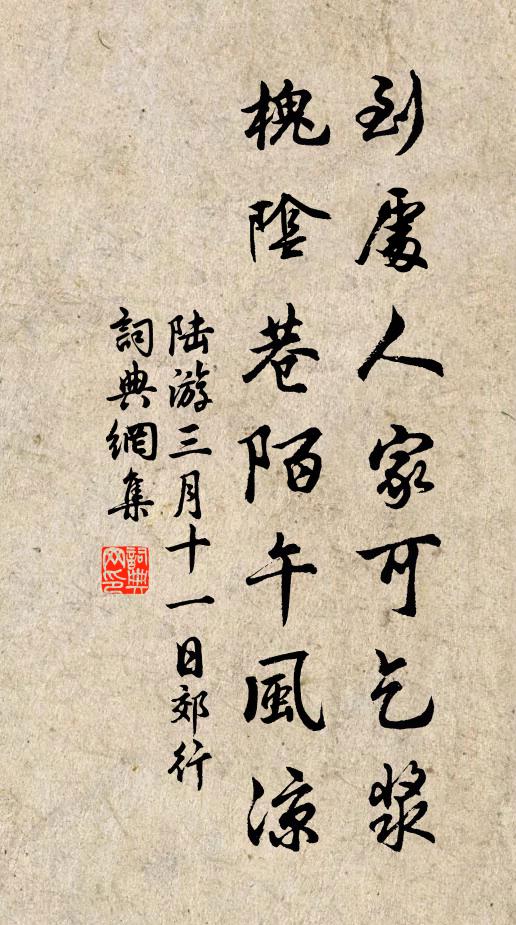 到處人家可乞漿
槐陰巷陌午風涼
陸游三月十一日郊行
詞典網集
詞典网印